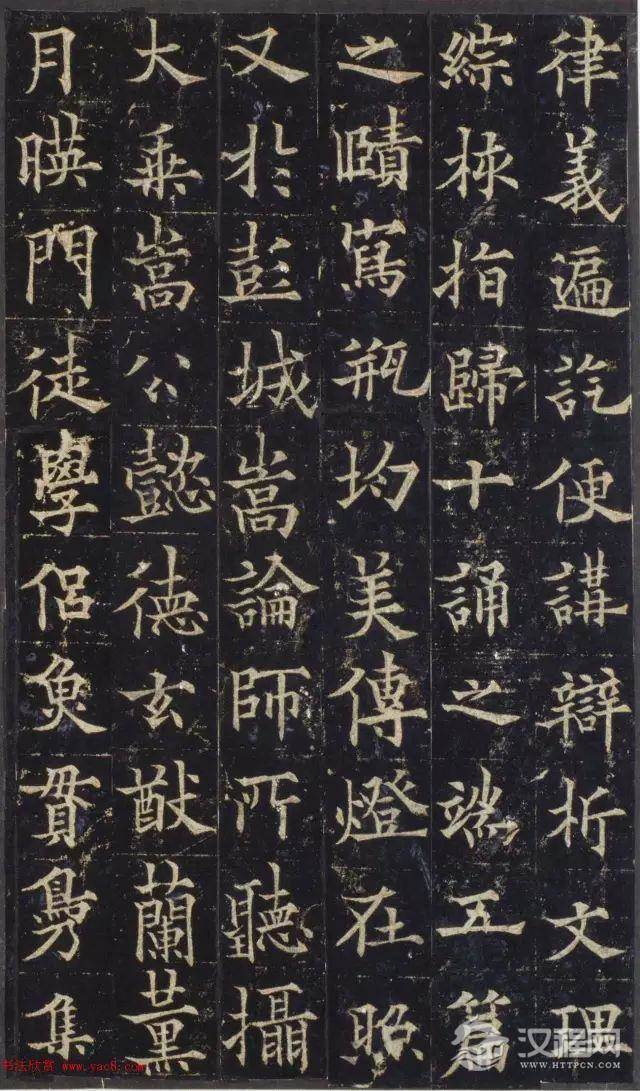 律義遍訖便講辯析文理
綜指歸十誦之端五篇
之賾寫瓶均美傳燈在照
又於彭城嵩論師所聽攝
大乘嵩公懿德玄猷蘭薰
月暎門徒學侶魚貫鳧集
书法欣赏 www.yac8.com
汉程网
WWW.HTTPCN.COM